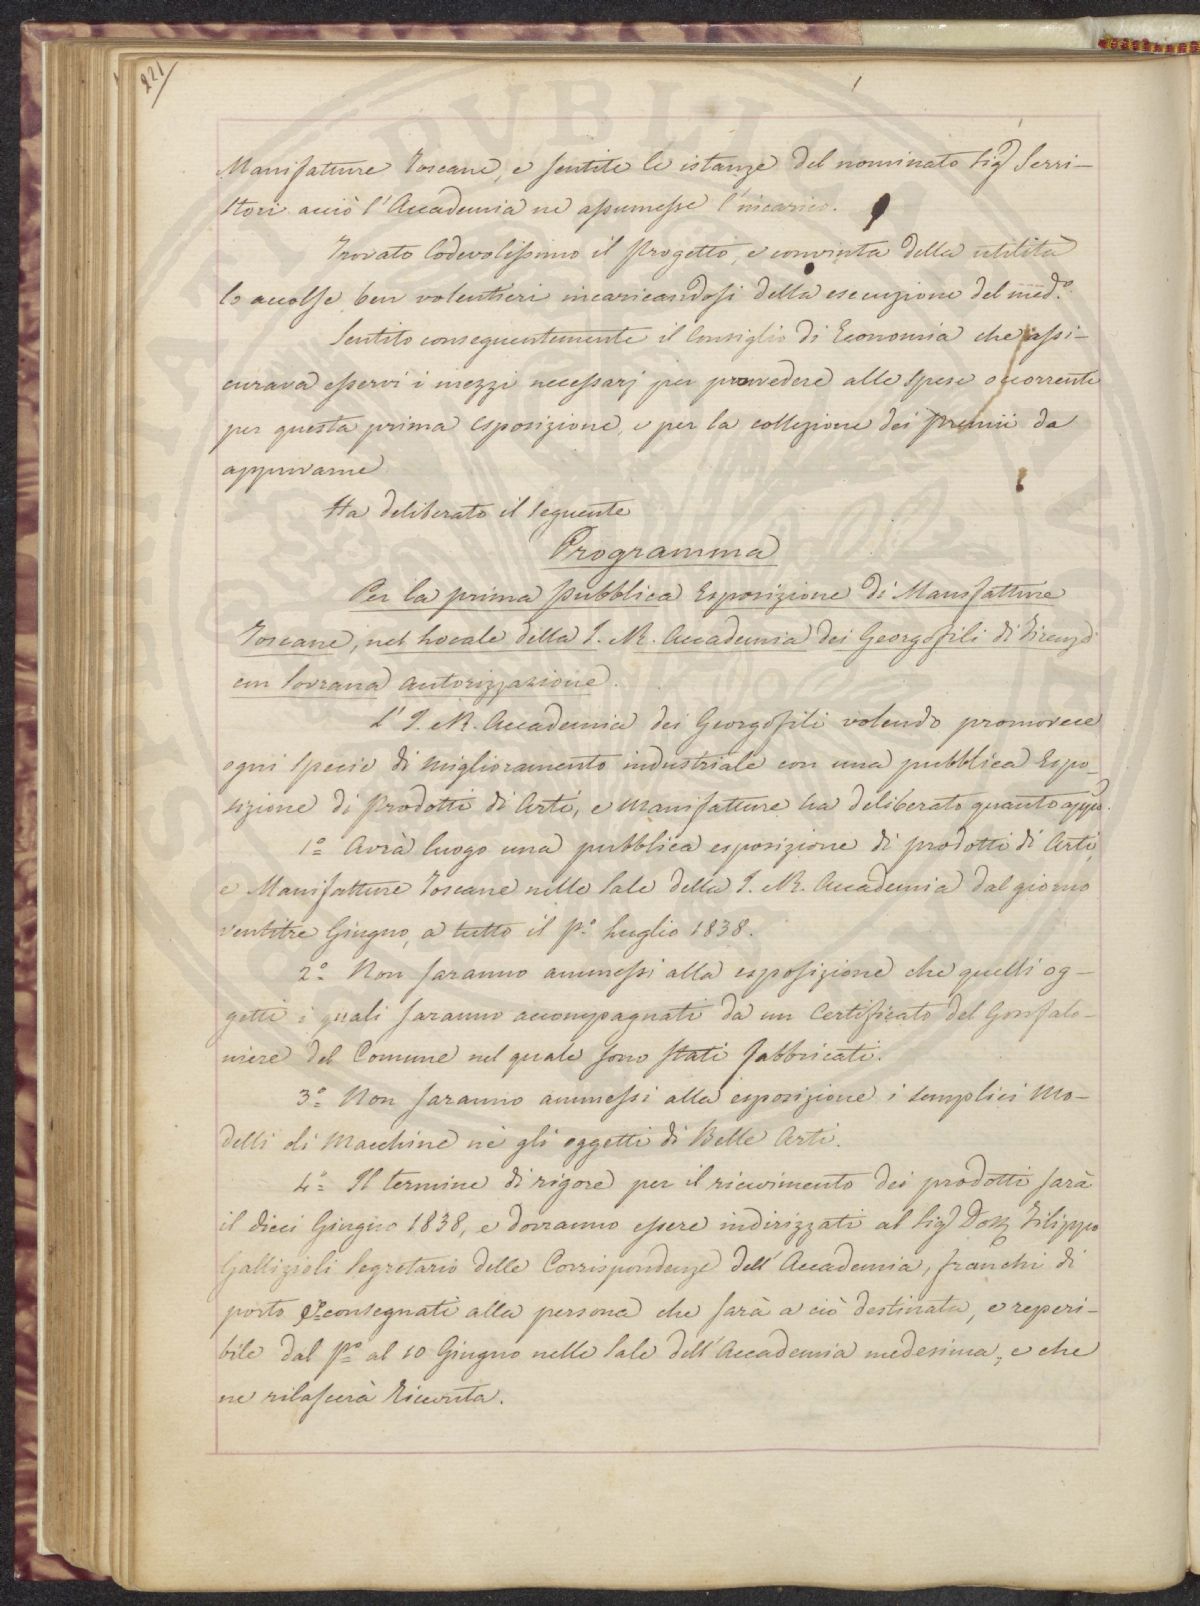 221
Manifatture Toscane, e sentite le istanze del nominato Sigr Serri-
stori acciò l'Accademia ne assumesse l'incarico.
Trovato lodevolissimo il Progetto, e convinta della utilità
lo accolse ben volentieri incaricandosi della esecuzione del medo.
Sentito conseguentemente il Consiglio di Economia che assi-
curava esservi i mezzi necessarj per provvedere alle spese occorrenti
per questa prima esposizione, e per la collezione dei Premii da
Ha deliberato il seguente
Programma
Per la prima pubblica Esposizione di Manifatture
Toscane, nel Locale della I. e R. Accademia dei Georgofili di Firenze
con Sovrana autorizzazione.
L'I. e R. Accademia dei Georgofili volendo promovere
ogni specie di miglioramento industriale con una pubblica Espo-
sizione di Prodotti di Arti, e Manifatture ha deliberato quanto appo.
1o Avrà luogo una pubblica esposizione di prodotti di Arti,
e Manifatture Toscane nelle Sale della I. e R. Accademia dal giorno
ventitre Giugno, a tutto il Po Luglio 1838.
2o Non saranno ammessi alla esposizione che quelli og-
getti i quali saranno accompagnati da un Certificato del Gonfalo-
niere del Comune nel quale sono stati fabbricati.
3o Non saranno ammessi alla esposizione i semplici Mo-
delli di Macchine nè gli oggetti di Belle Arti.
4o Il termine di rigore per il ricevimento dei prodotti sarà
il dieci Giugno 1838, e dovranno essere indirizzati al Sigr Dott Filippo
Gallizioli Segretario delle Corrispondenze dell'Accademia, franchi di
porto consegnati alla persona che sarà a ciò destinata, e reperi-
bile dal Po al 10 Giugno nelle Sale dell'Accademia medesima, e che
ne rilascerà Ricevuta.